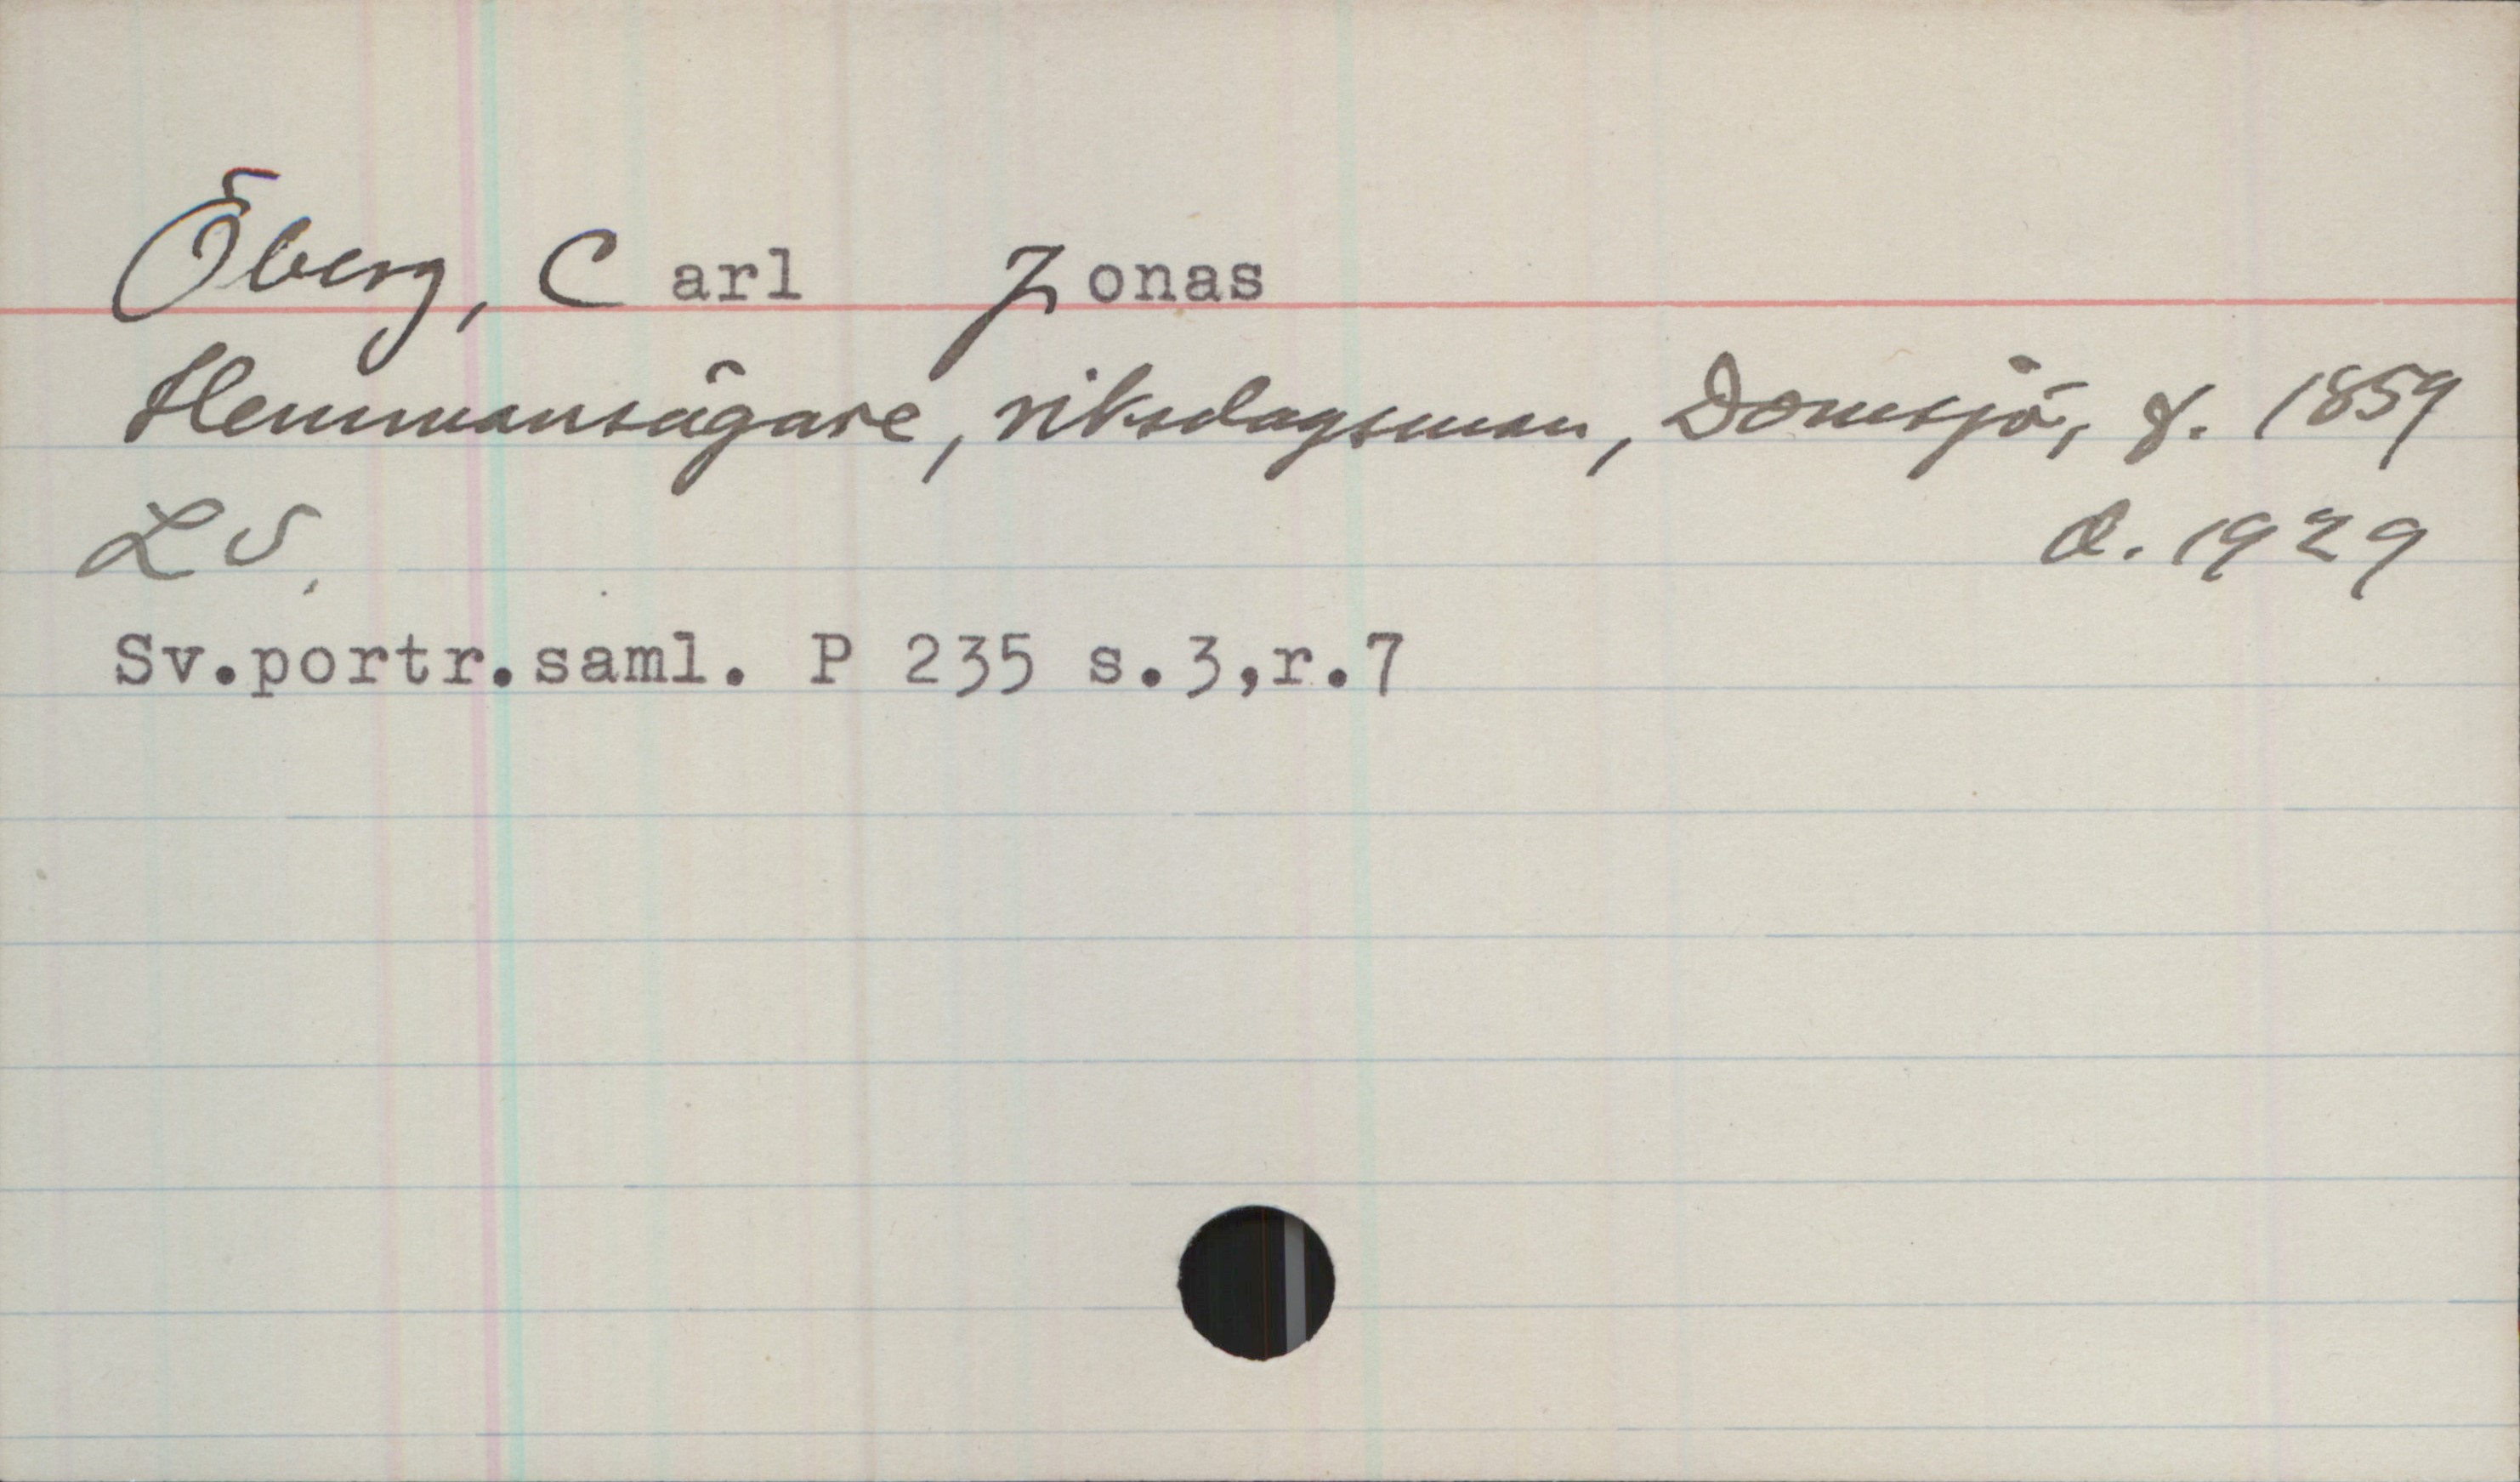 Öberg, Carl Jonas
Hemmansägare, riksdagsman, Domsjö, f. 1859
LS. d. 1929
Sv.portr.saml. P 235 s.3,r.7